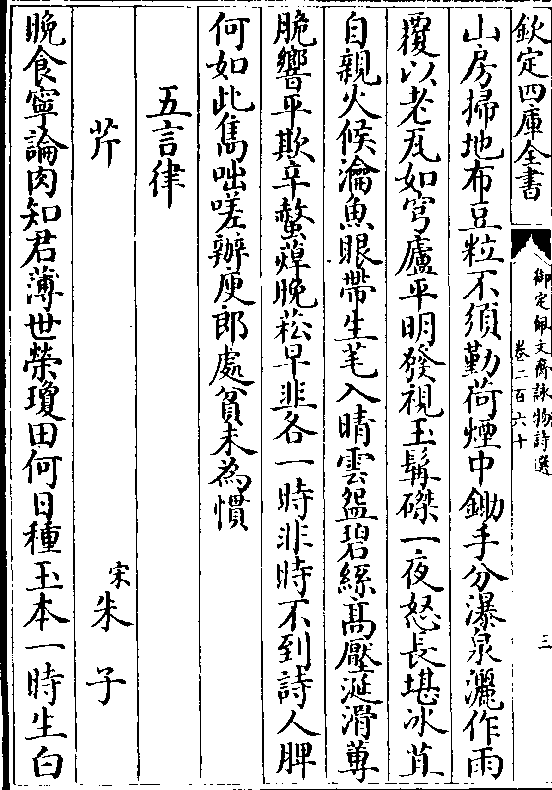 欽定四庫全書
御定佩文齋詠物詩選
卷二百六十
三
山房掃地布豆粒不須勤荷煙中鋤手分瀑泉灑作雨
覆以老瓦如穹廬平明發視玉髯磔一夜怒長堪冰苴
自親火候瀹魚眼帶生芼入晴雲盌碧絲髙壓涎滑蓴
脆響平欺辛螫蔊晚菘早韭各一時非時不到詩人脾
何如此雋咄嗟辦庾郎處貧未為慣
五言律
芹
宋朱子
晚食寧論肉知君薄世榮瓊田何日種玉本一時生白